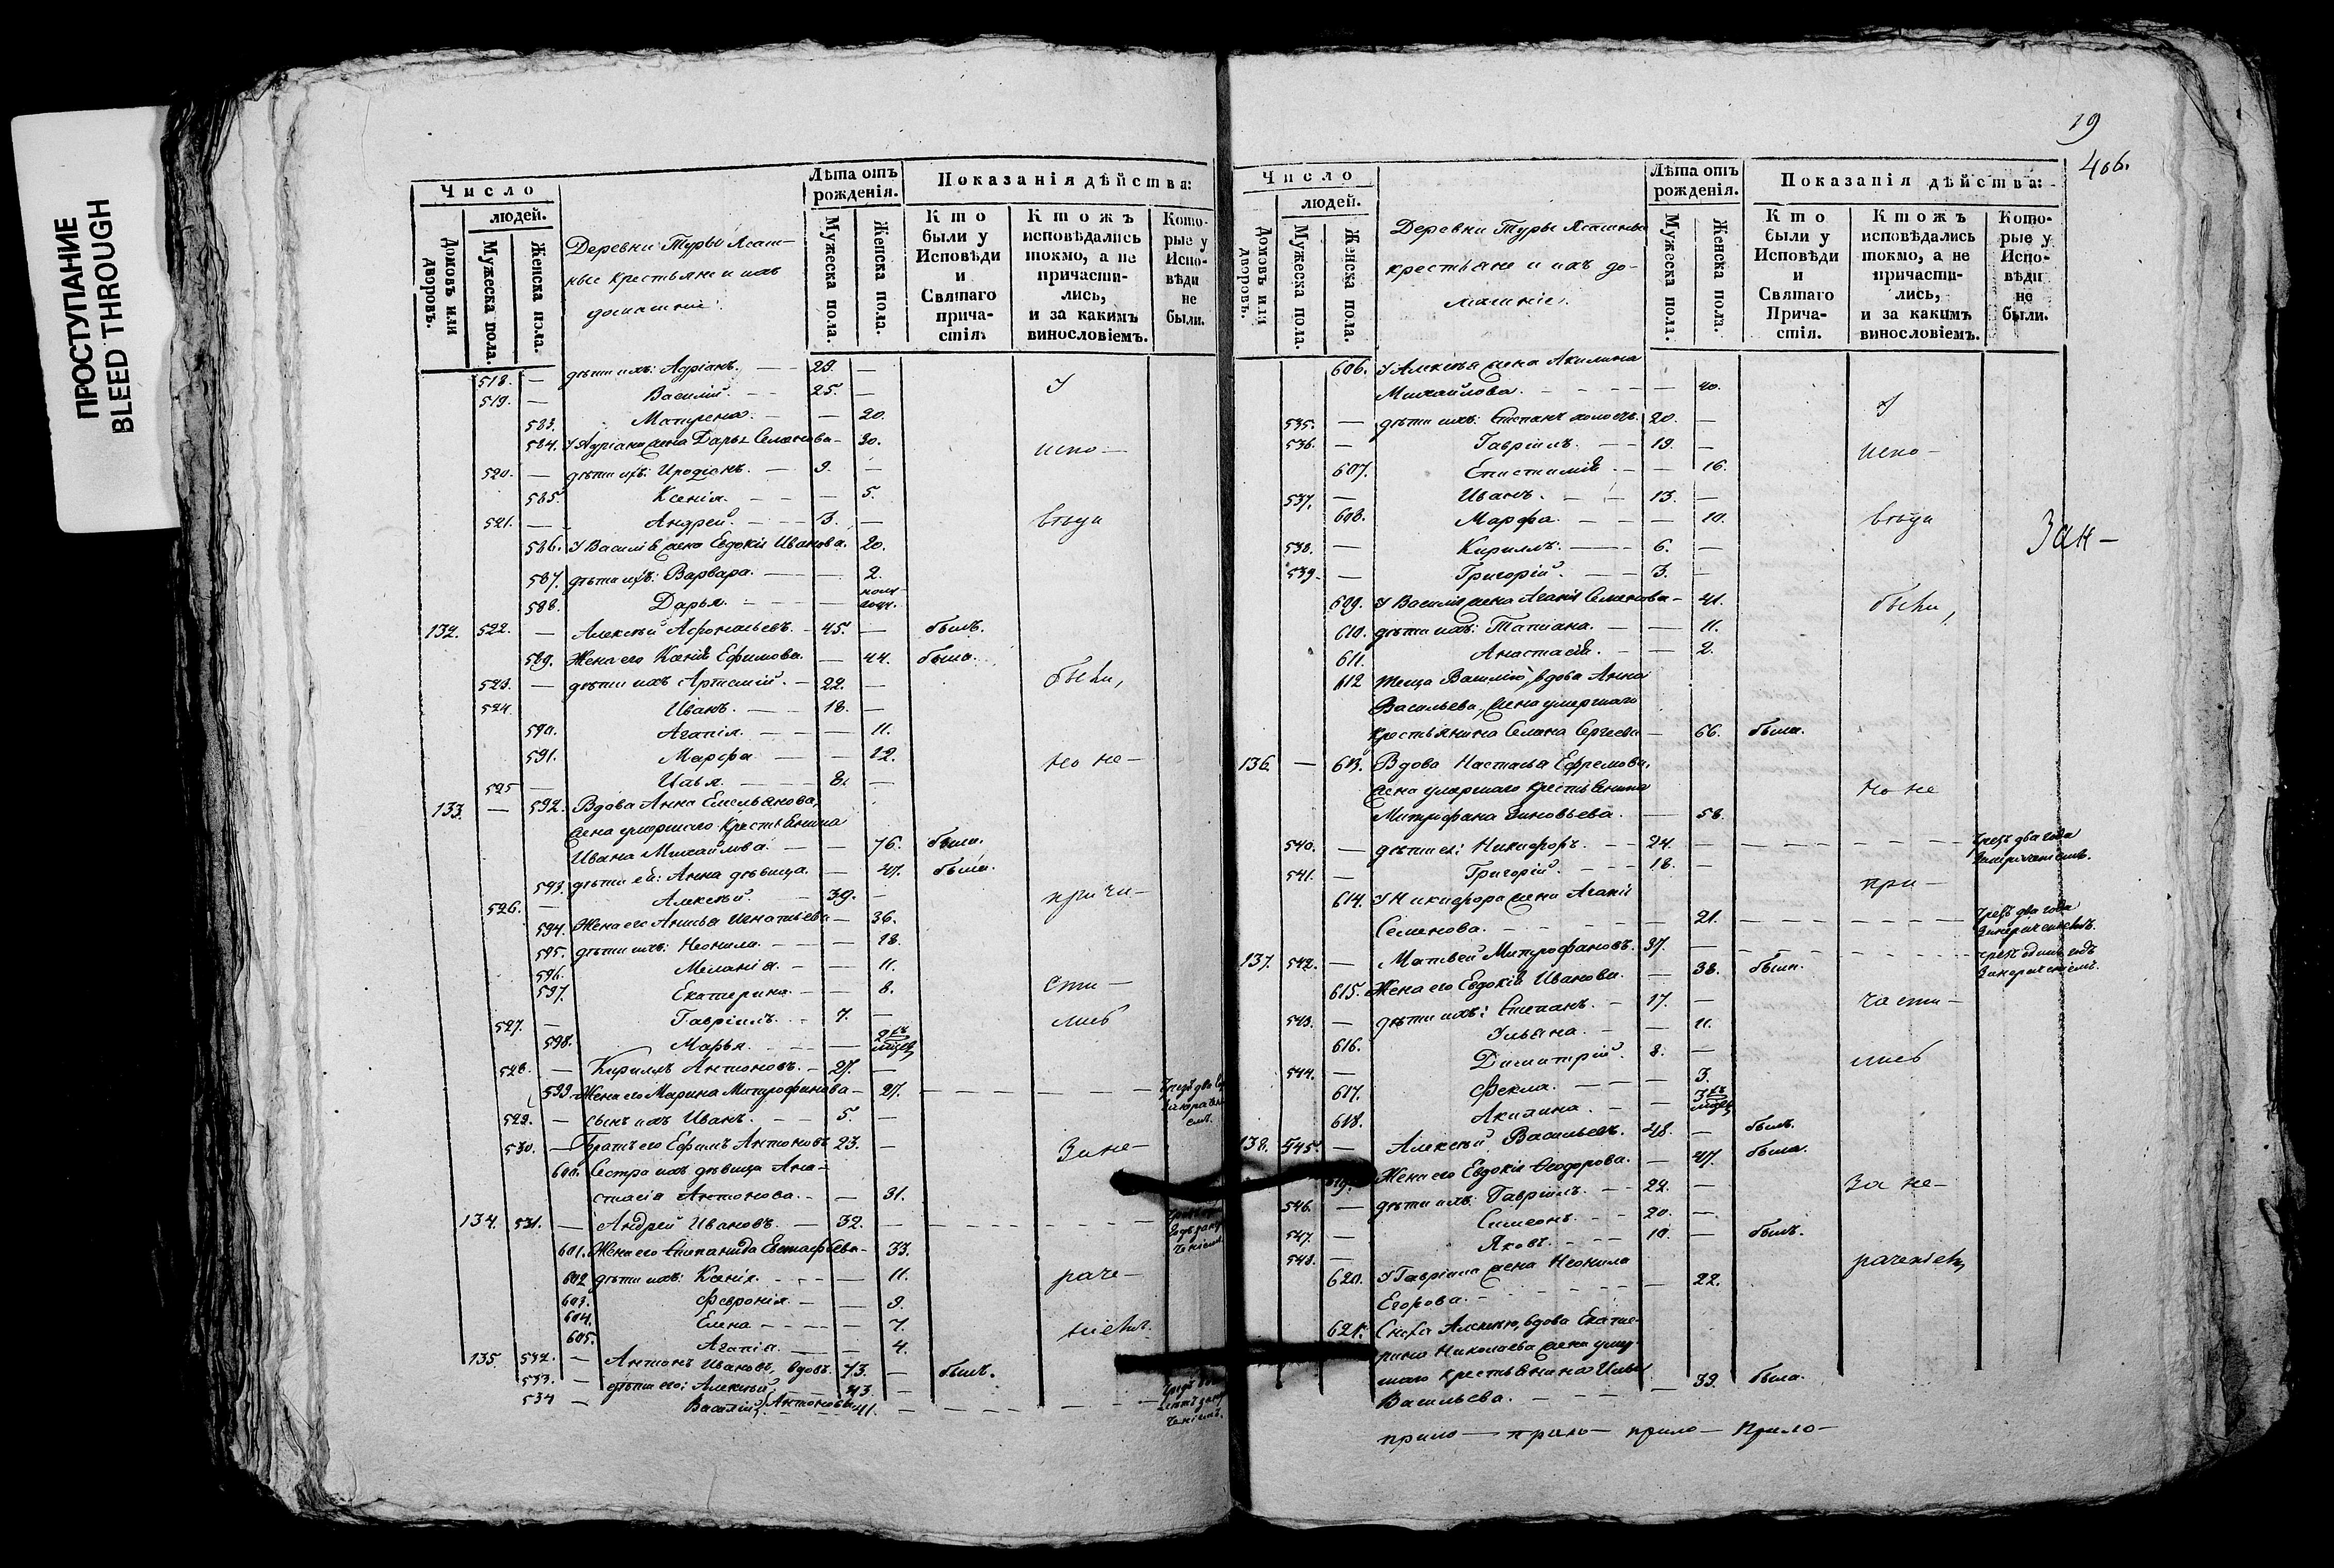 ПРОСТУПАНИЕ
BLEED THROUGH
Число
людей.
Домовъ или дворовъ.
Мужеска пола.
Женска пола.
Деревни Туры Ясаш-
ные крестьяне и ихъ
домашніе:
Лѣта отъ рожденія.
Мужеска пола.
Женска пола.
Показанія дѣйства:
Кто были у Исповѣди и Святаго причастія.
Ктожъ исповѣдались токмо, а не причастились, и за какимъ винословіемъ.
Которые у Исповѣди не были.
518. — дѣти ихъ: Адріанъ. — 29. —
519. — Василій. — 25. —
583. Матрена. — — 20.
584. У Адріана жена Дарья Семенова — 30.
520. — дѣти ихъ: Иродіонъ. — 9. —
585. Ксенія. — — 5.
521. — Андрей. — 3. —
586. У Василія жена Евдокія Иванова. 20.
587. дѣти ихъ: Варвара. — — 2.
588. Дарья. — —
132. 522. — Алексѣй Афонасьевъ. — 45. — былъ.
589. Жена его Ксенія Ефимова. — 44. была.
523. — дѣти ихъ Артемій. — 22. —
524. Иванъ. — 18. —
590. Агапія. — — 11.
591. Марфа. — — 12.
525 — Илья. — 8. —
133. — 592. Вдова Анна Емельянова,
жена умершаго крестьянина
Ивана Михайлова. — — 76. была.
593. дѣти ей: Анна дѣвица. — 47. была.
526. — Алексѣй. — 39. —
594. Жена его Анисья Игнатьева — 36.
595. дѣти ихъ: Неонила. — — 18.
596. Меланія. — — 11.
597. Екатерина. — — 8.
527. — Гавріилъ. — 7. —
598. Марья. — —
528. — Кириллъ Антоновъ. — 27. —
599. Жена его Марина Митрофанова — 27.
529. — сынъ ихъ Иванъ. — 5. —
530. — Братъ его Ефимъ Антоновъ 23. —
600. Сестра ихъ дѣвица Ана-
стасія Антонова. — — 31.
134. 531. — Андрей Ивановъ. — 32. —
601. Жена его Степанида Евстафьева — 33.
602 дѣти ихъ: Ксенія. — — 11.
603. Февронія. — — 9.
604. Елена — — 7.
605. Агапія. — — 4.
135. 532. — Антонъ Ивановъ, вдовъ. 73. — былъ.
533. — дѣти его: Алексѣй 43. —
534 — Василій Антоновы 41. —
У
испо —
вѣди
были,
но не —
прича —
сти —
лись
За не —
раче —
ніемъ.
19
406.
Число
людей.
Домовъ или дворовъ.
Мужеска пола.
Женска пола.
Деревни Туры Ясашные
крестьяне и ихъ до-
машніе.
Лѣта отъ рожденія.
Мужеска пола.
Женска пола.
Показанія дѣйства:
Кто были у Исповѣди и Святаго Причастія.
Ктожъ исповѣдались токмо, а не причастились, и за какимъ винословіемъ.
Которые у Исповѣди не были.
606. У Алексѣя жена Акилина
Михайлова. — — 40.
535. — дѣти ихъ: Степанъ холостъ. 20. —
536. — Гавріилъ. — 19. —
607. Епистимія — — 16.
537. — Иванъ. — 13. —
608. Марфа. — — 10.
538. — Кириллъ. — 6. —
539. — Григорій. — 3. —
609. У Василія жена Агапія Семенова — 41.
610. дѣти ихъ: Татіана. — — 11.
611. Анастасія. — — 2.
612 теща Василію, вдова Анна
Васильева, жена умершаго
крестьянина Семена Сергеева — 66. была.
136. — 613. Вдова Настасья Ефремова,
жена умершаго крестьянина
Митрофана Зиновьева. — 58.
540. — дѣти ея: Никифоръ. — 24. — Чрезъ два года
За нераченіемъ.
541. — Григорій. — 18. —
614. У Никифора жена Агапія
Семенова. — — 21. — Чрезъ два года
За нераченіемъ.
137. 542. — Матвей Митрофановъ. 37. — чрезъ одинъ годъ
За нераченіемъ.
615. Жена его Евдокія Иванова. — 38. была.
543. — дѣти ихъ: Степанъ. — 17. —
616. Ульяна. — — 11.
544. — Димитрій. 8. —
617. Фекла. — — 3.
618. Акилина. — —
138. 545. — Алексѣй Васильевъ. 48. — былъ.
619. Жена его Евдокія Ѳеодорова. — 47. была.
546. — дѣти ихъ: Гавріилъ. — 22. —
547. — Симеонъ. — 20. —
548. — Яковъ. — 10. — былъ.
620. У Гавріила жена Неонила
Егорова. — — 22.
621. Сноха Алексѣю, вдова Екате-
рина Николаева жена умер-
шаго крестьянина Ильи
Васильева. — — 39. была.
У
испо —
вѣди
были,
но не
при —
части —
лись
За не —
раченіемъ
Зан —